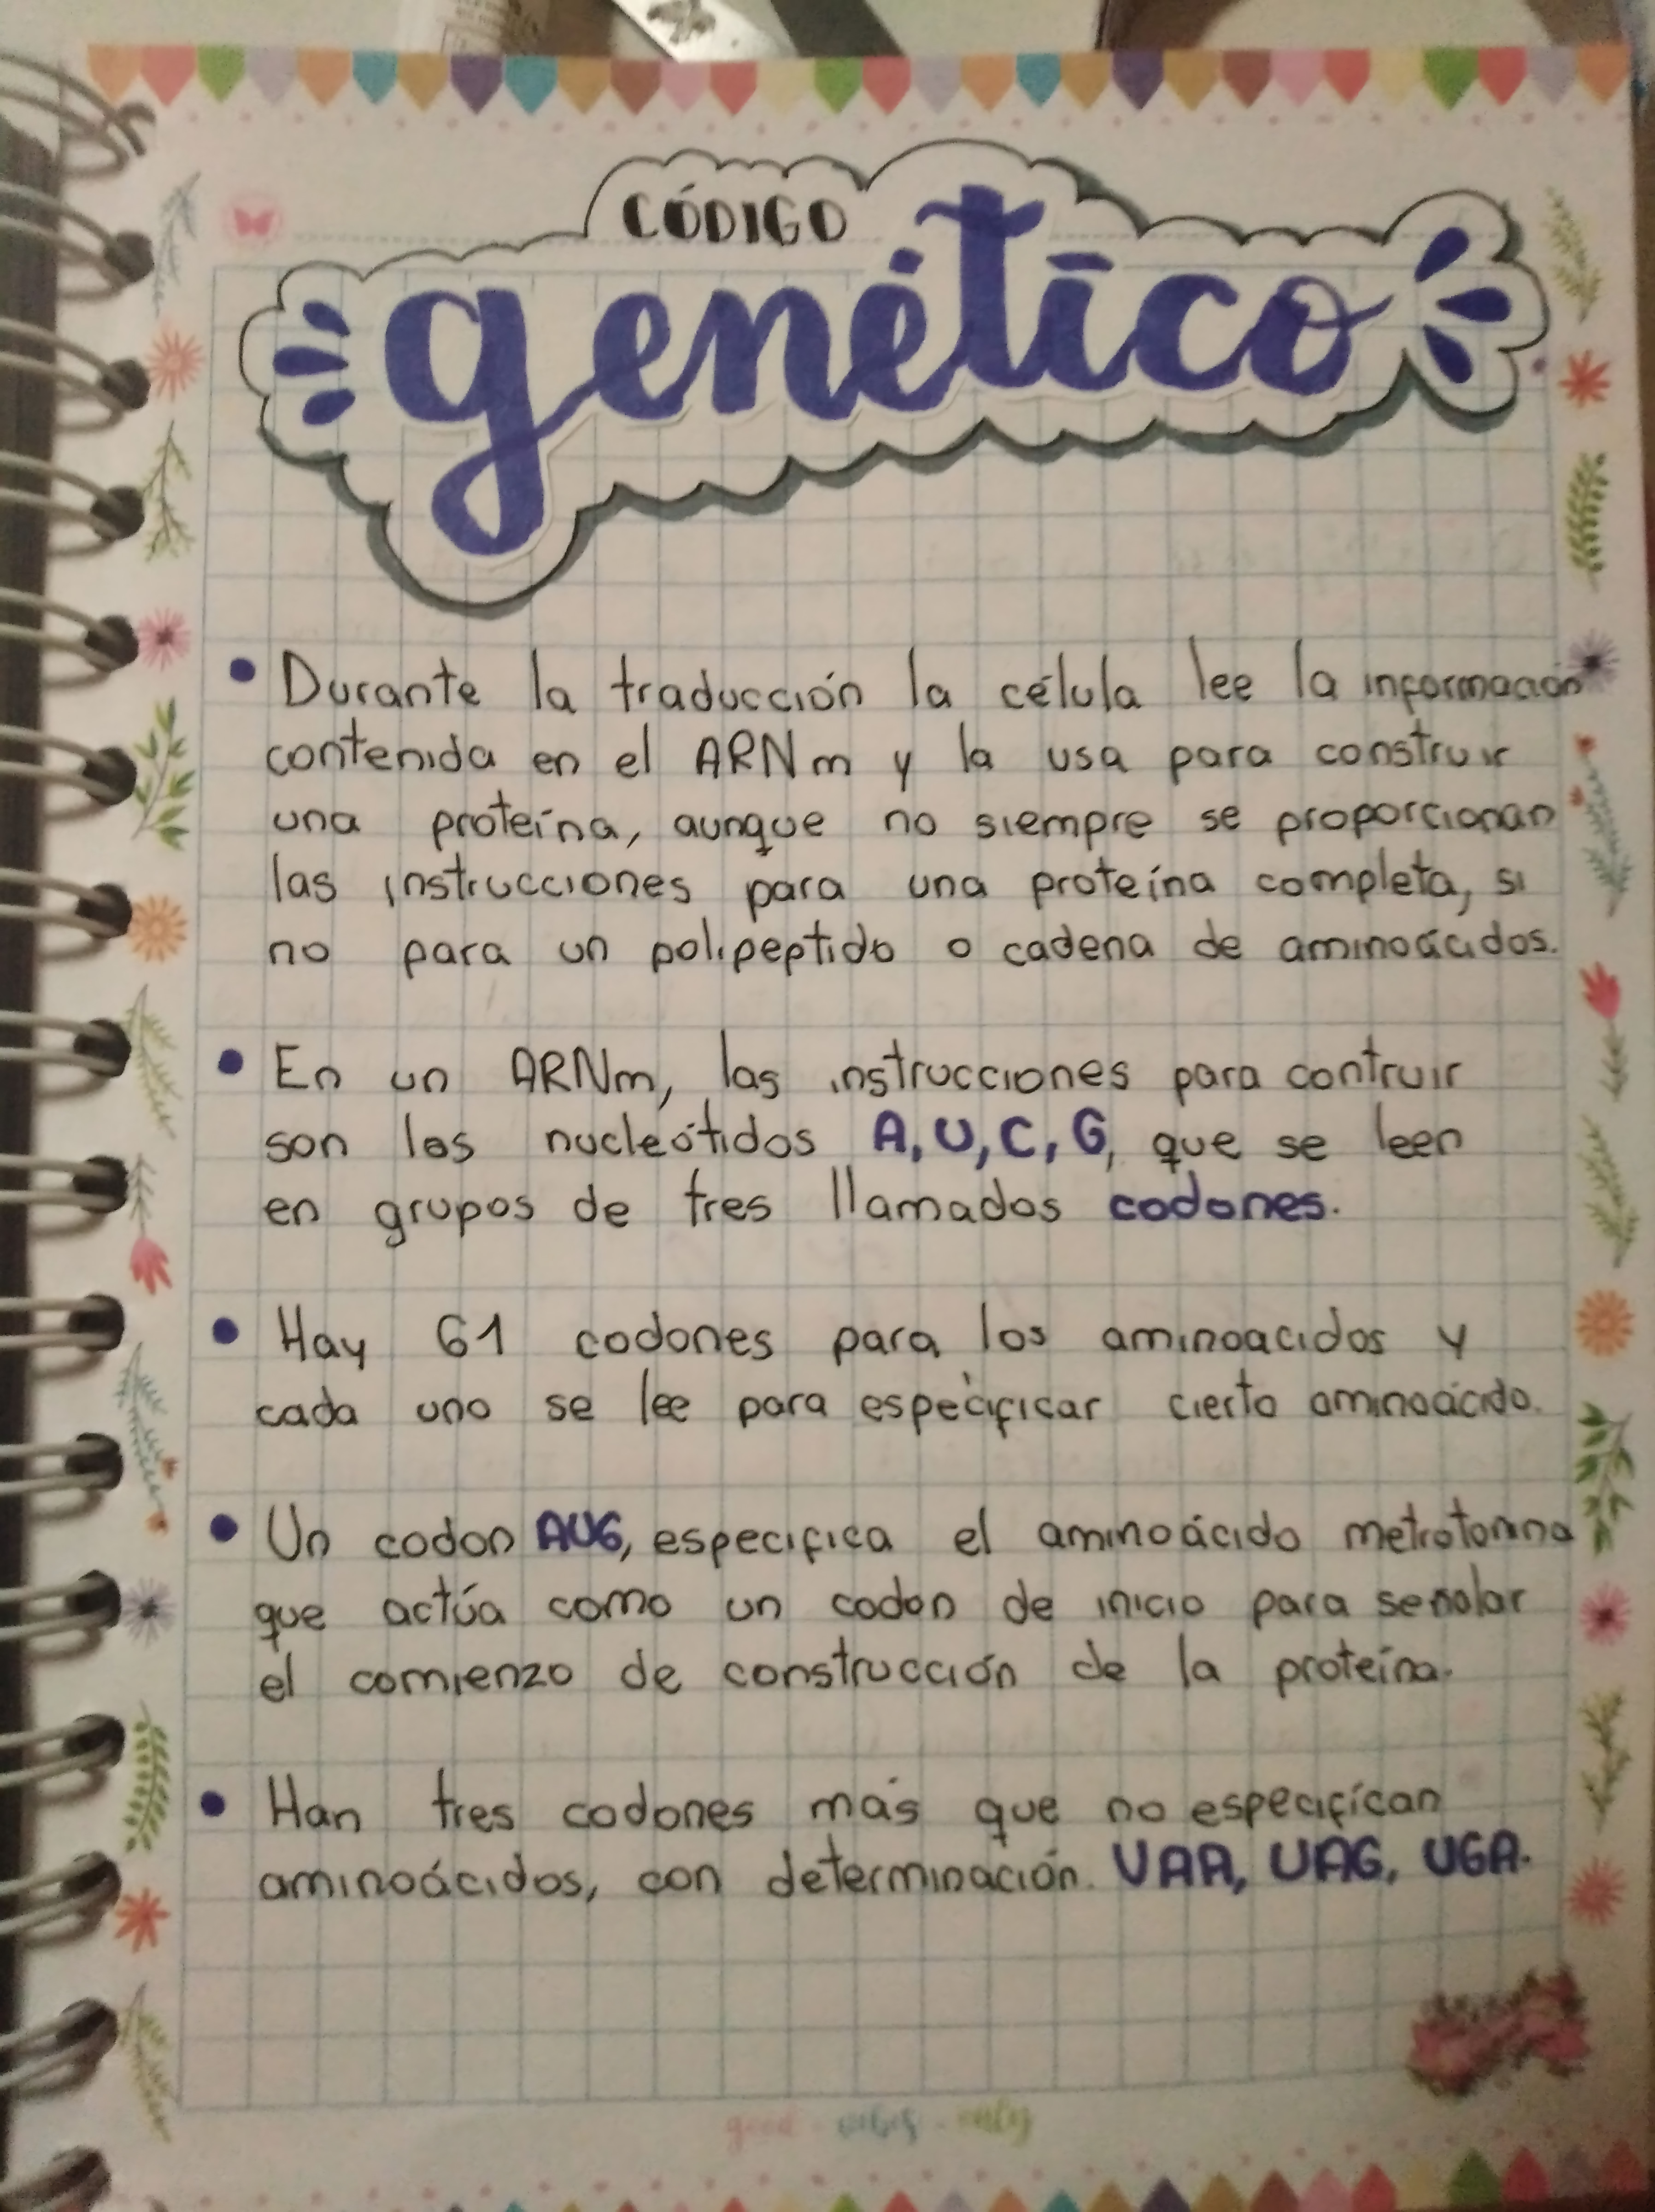 CÓDIGO
genético
• Durante la traducción la célula lee la información
contenida en el ARNm y la usa para construir
una proteína, aunque no siempre se proporcionan
las instrucciones para una proteína completa, si
no para un polipeptido o cadena de aminoácidos.
• En un ARNm, las instrucciones para contruir
son los nucleótidos A, U, C, G, que se leen
en grupos de tres llamados codones.
• Hay 61 codones para los aminoacidos y
cada uno se lee para especificar cierto aminoácido.
• Un codon AUG, especifica el aminoácido metrotonina
que actúa como un codon de inicio para senolar
el comienzo de construcción de la proteína.
• Han tres codones más que no específican
aminoácidos, con determinación. UAA, UAG, UGA.
good - vibes - only